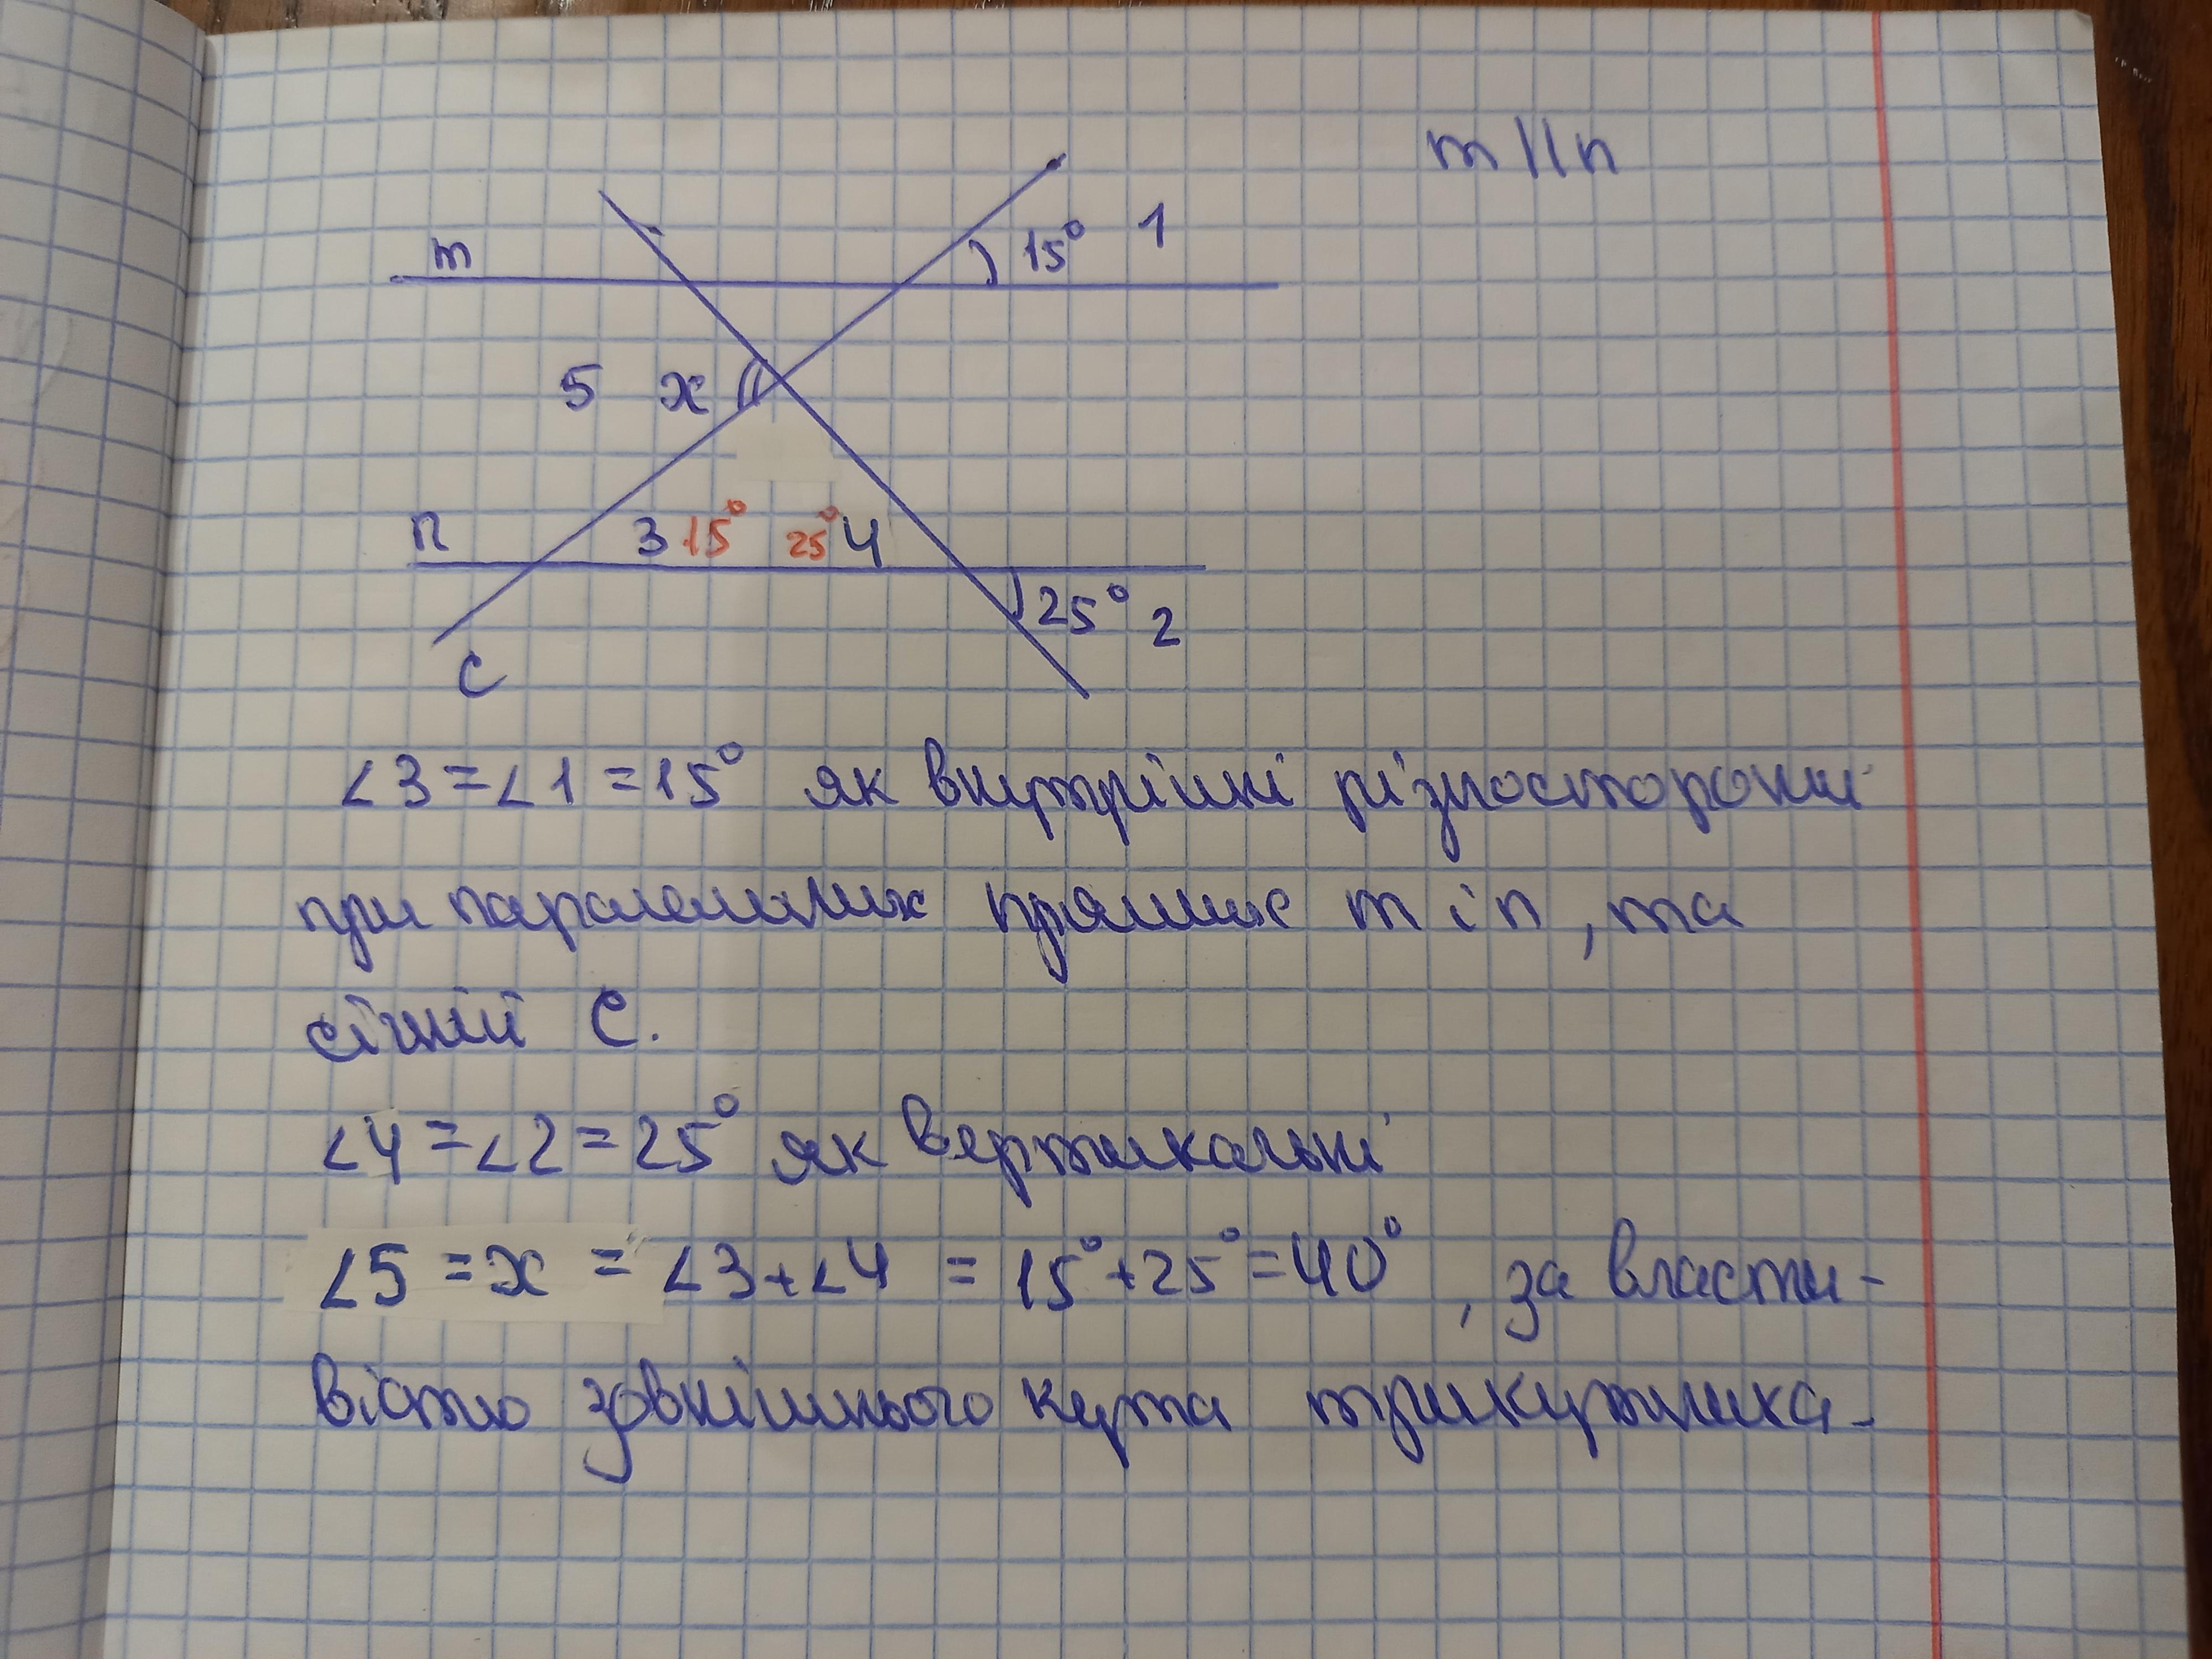 m || n
15° 1
m
5 x
n
3 15° 25° 4
25° 2
c
∠3 = ∠1 = 15° як внутрішні різносторонні
при паралельних прямих m і n, та
січній c.
∠4 = ∠2 = 25° як вертикальні
∠5 = x = ∠3 + ∠4 = 15° + 25° = 40°, за власти-
вістю зовнішнього кута трикутника.